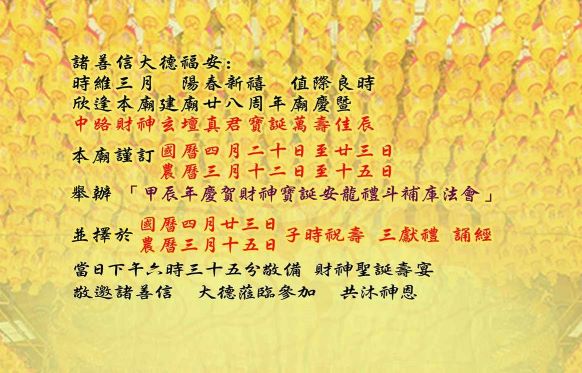 諸善信大德福安：
時維三月　陽春新禧　值際良時
欣逢本廟建廟廿八周年廟慶暨
中路財神玄壇真君寶誕萬壽佳辰
本廟謹訂 國曆四月二十日至廿三日
農曆三月十二日至十五日
舉辦 「甲辰年慶賀財神寶誕安龍禮斗補庫法會」
並擇於 國曆四月廿三日 子時祝壽 三獻禮 誦經
農曆三月十五日
當日下午六時三十五分敬備 財神聖誕壽宴
敬邀諸善信　大德蒞臨參加　共沐神恩